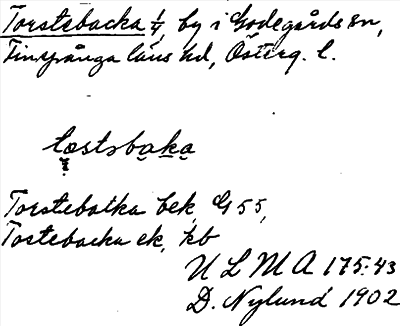 Torstebacka 1/4, by i Godegårds sn,
Finspånga läns hd, Österg. l.
tɷstsbaka
Torstebatka bek G 55,
Tostebacka ek, kb
U L M A 175:43
D. Nylund 1902